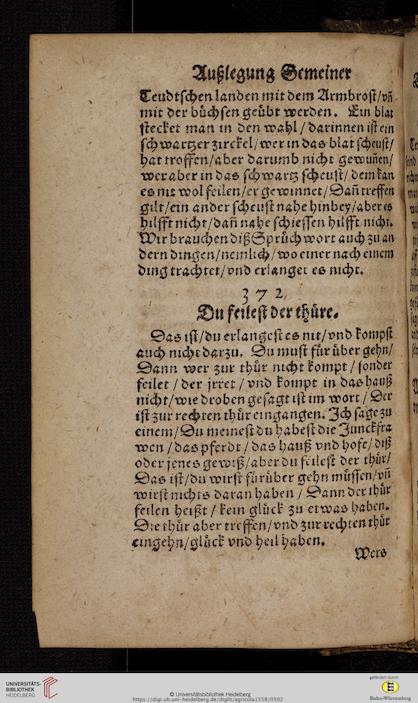 Außlegung Gemeiner
Teudtschen landen mit dem Armbrost/vñ
mit der büchsen geübt werden. Ein blat
stecket man in den wahl/darinnen ist ein
schwartzer zirckel/wer in das blat scheust/
hat troffen/aber darumb nicht gewuñen/
wer aber in das schwartz scheust/dem kan
es nit wol feilen/er gewinnet/Dañ treffen
gilt/ein ander scheust nahe hinbey/aber es
hilfft nicht/dañ nahe schiessen hilfft nicht.
Wir brauchen diß Sprüchwort auch zu an
dern dingen/nemlich/wo einer nach einem
ding trachtet/vnd erlanget es nicht.
372
Du feilest der thüre.
Das ist/du erlangest es nit/vnd kompst
auch nicht darzu. Du must für über gehn/
Dann wer zur thür nicht kompt/sonder
feilet/der jrret/vnd kompt in das hauß
nicht/wie droben gesagt ist im wort/Der
ist zur rechten thür eingangen. Ich sage zu
einem/Du meinest du habest die Junckfra
wen/das pferdt/das hauß vnd hofe/diß
oder jenes gewiß/aber du feilest der thür/
Das ist/du wirst fürüber gehn müssen/vñ
wirst nichts daran haben/Dann der thür
feilen heißt/kein glück zu etwas haben.
Die thür aber treffen/vnd zur rechten thür
eingehn/glück vnd heil haben.
Wers
UNIVERSITÄTS-
BIBLIOTHEK
HEIDELBERG
© Universitätsbibliothek Heidelberg
https://digi.ub.uni-heidelberg.de/diglit/agricola1558/0502
gefördert durch
Baden-Württemberg